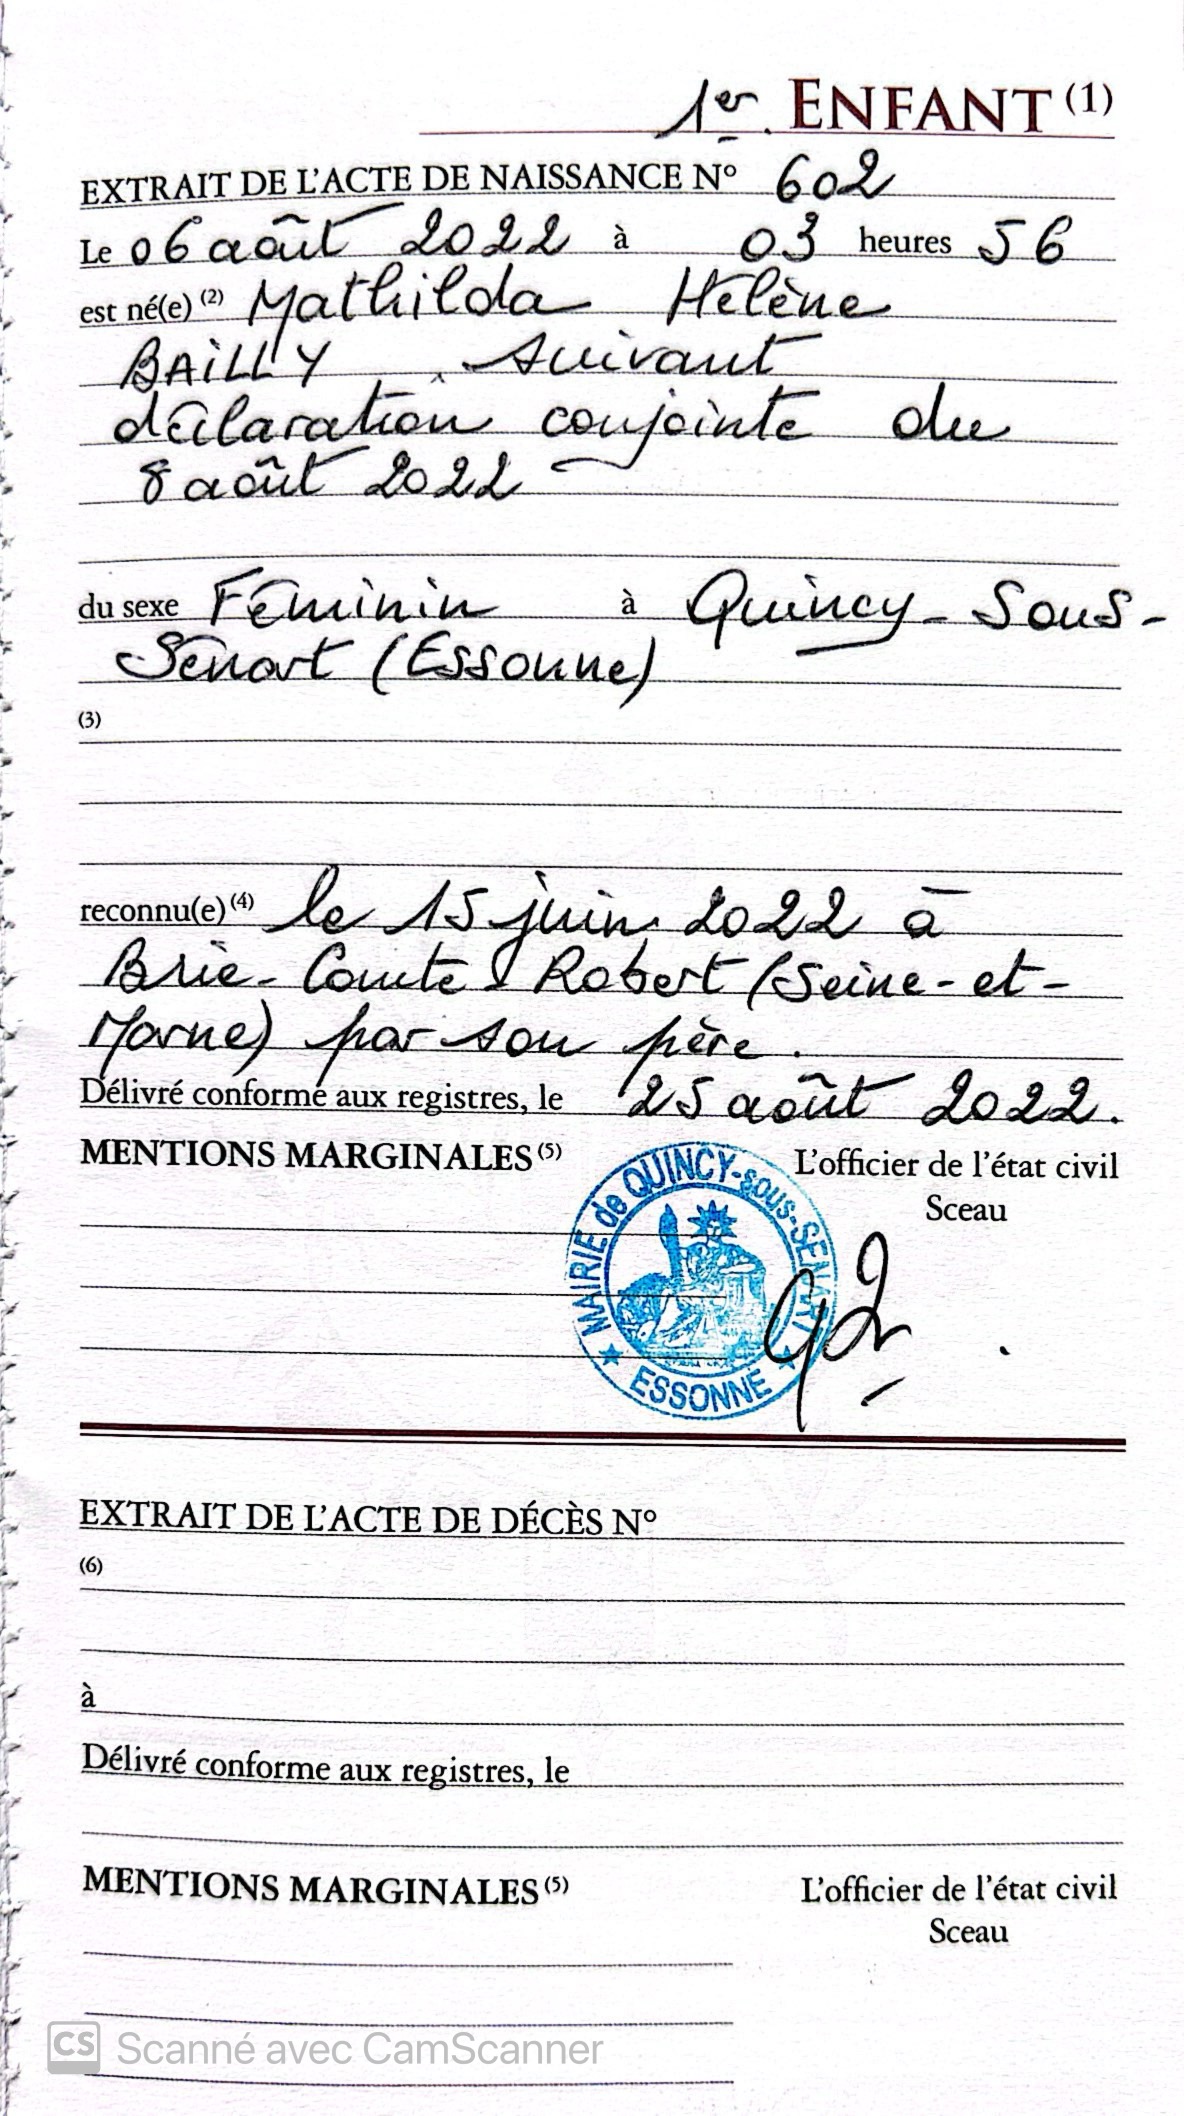 1er. ENFANT (1)
EXTRAIT DE L'ACTE DE NAISSANCE N° 602
Le 06 août 2022 à 03 heures 56
est né(e) (2) Mathilda Hélène
BAILLY, suivant
déclaration conjointe du
8 août 2022
du sexe Féminin à Quincy-Sous-
Sénart (Essonne)
(3)
reconnu(e) (4) le 15 juin 2022 à
Brie-Comte-Robert (Seine-et-
Marne) par son père.
Délivré conforme aux registres, le 25 août 2022.
MENTIONS MARGINALES (5)
L'officier de l'état civil
Sceau
MAIRIE de QUINCY-sous-SENART
★ ESSONNE ★
EXTRAIT DE L'ACTE DE DÉCÈS N°
(6)
à
Délivré conforme aux registres, le
MENTIONS MARGINALES (5)
L'officier de l'état civil
Sceau
CS Scanné avec CamScanner